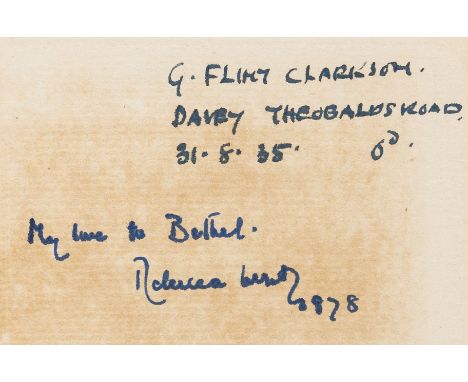 G. FLINT CLARKSON.
DAVEY THEOBALDS ROAD
31.8.35. 6d.
My love to Bethel.
Rebecca West
1978